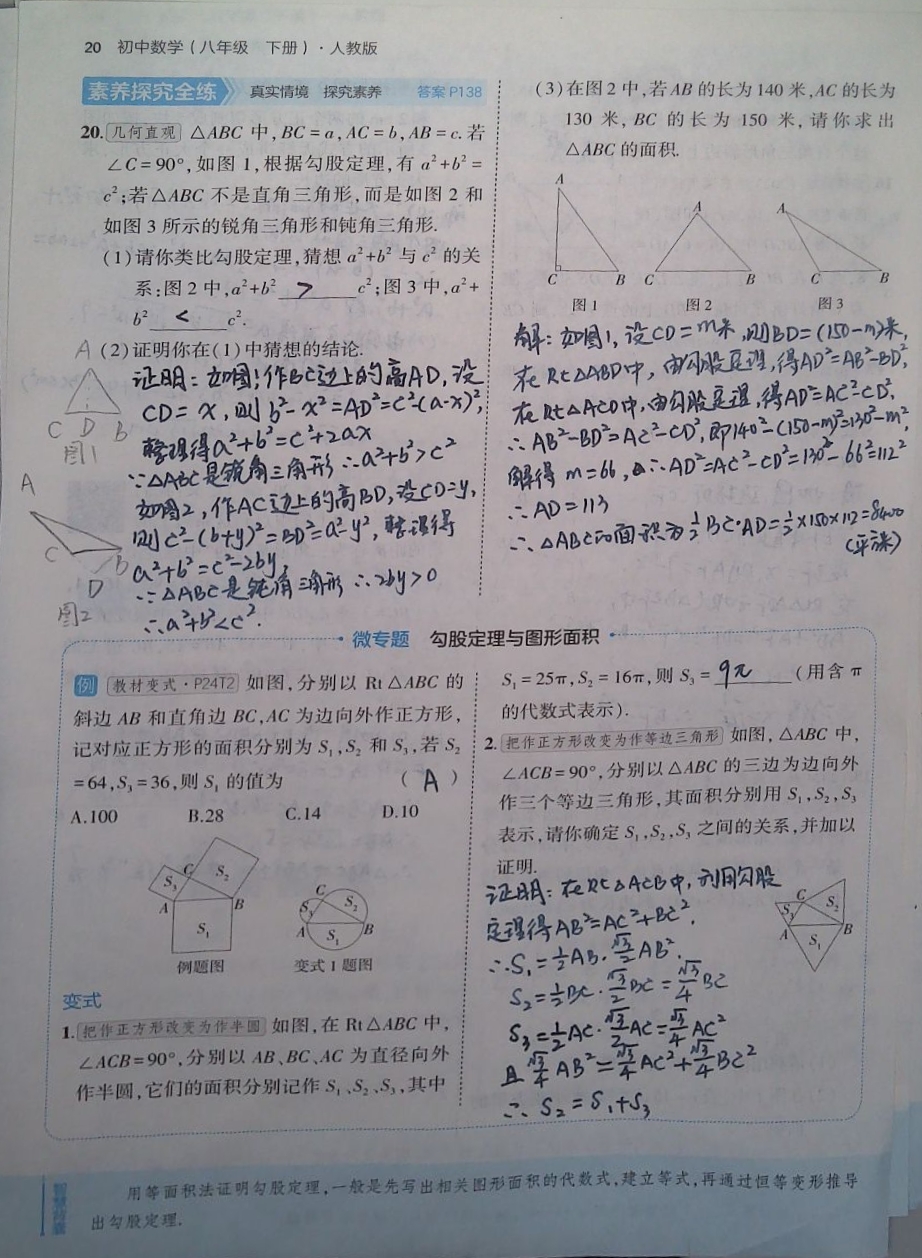 20 初中数学(八年级 下册)·人教版
素养探究全练 真实情境 探究素养 答案P138
20.几何直观 △ABC 中,BC=a,AC=b,AB=c.若
∠C=90°,如图 1,根据勾股定理,有 a²+b²=
c²;若△ABC 不是直角三角形,而是如图 2 和
如图 3 所示的锐角三角形和钝角三角形.
(1)请你类比勾股定理,猜想 a²+b² 与 c² 的关
系:图 2 中,a²+b² > c²;图 3 中,a²+
b² < c².
(2)证明你在(1)中猜想的结论.
证明:如图1作BC边上的高AD,设
CD=x,则b²-x²=AD²=c²-(a-x)²,
整理得a²+b²=c²+2ax
∵△ABC是锐角三角形∴a²+b²>c²
如图2,作AC边上的高BD,设CD=y,
则c²-(b+y)²=BD²=a²-y²,整理得
a²+b²=c²-2by,
∵△ABC是钝角三角形∴2by>0
∴a²+b²<c².
A
C D B
图1
A
C B
D
图2
(3)在图 2 中,若 AB 的长为 140 米,AC 的长为
130 米, BC 的长为 150 米,请你求出
△ABC 的面积.
A A A
C B C B C B
图 1 图 2 图 3
解:如图1,设CD=m米,则BD=(150-m)米,
在Rt△ABD中,由勾股定理,得AD²=AB²-BD²,
在Rt△ACD中,由勾股定理,得AD²=AC²-CD²,
∴AB²-BD²=AC²-CD²,即140²-(150-m)²=130²-m²,
解得 m=66,∴AD²=AC²-CD²=130²-66²=112²
∴AD=113
∴△ABC的面积为½BC·AD=½×150×112=8400
(平方米)
微专题 勾股定理与图形面积
例 教材变式·P24T2 如图,分别以 Rt△ABC 的
斜边 AB 和直角边 BC,AC 为边向外作正方形,
记对应正方形的面积分别为 S₁,S₂ 和 S₃,若 S₂
=64,S₃=36,则 S₁ 的值为 ( A )
A.100 B.28 C.14 D.10
C S₃ S₂ A B S₁
C S₃ S₂ A B S₁
例题图 变式 1 题图
变式
1.把作正方形改变为作半圆 如图,在 Rt△ABC 中,
∠ACB=90°,分别以 AB、BC、AC 为直径向外
作半圆,它们的面积分别记作 S₁、S₂、S₃,其中
S₁=25π,S₂=16π,则 S₃= 9π (用含 π
的代数式表示).
2.把作正方形改变为作等边三角形 如图,△ABC 中,
∠ACB=90°,分别以△ABC 的三边为边向外
作三个等边三角形,其面积分别用 S₁,S₂,S₃
表示,请你确定 S₁,S₂,S₃ 之间的关系,并加以
证明.
证明:在Rt△ACB中,利用勾股
定理得AB²=AC²+BC²,
∴S₁=½AB·√3/2AB².
S₂=½BC·√3/2BC=√3/4BC
S₃=½AC·√3/2AC=√3/4AC²
且√3/4AB²=√3/4AC²+√3/4BC²
∴S₂=S₁+S₃
C S₃ S₂ A B S₁
用等面积法证明勾股定理,一般是先写出相关图形面积的代数式,建立等式,再通过恒等变形推导
出勾股定理.